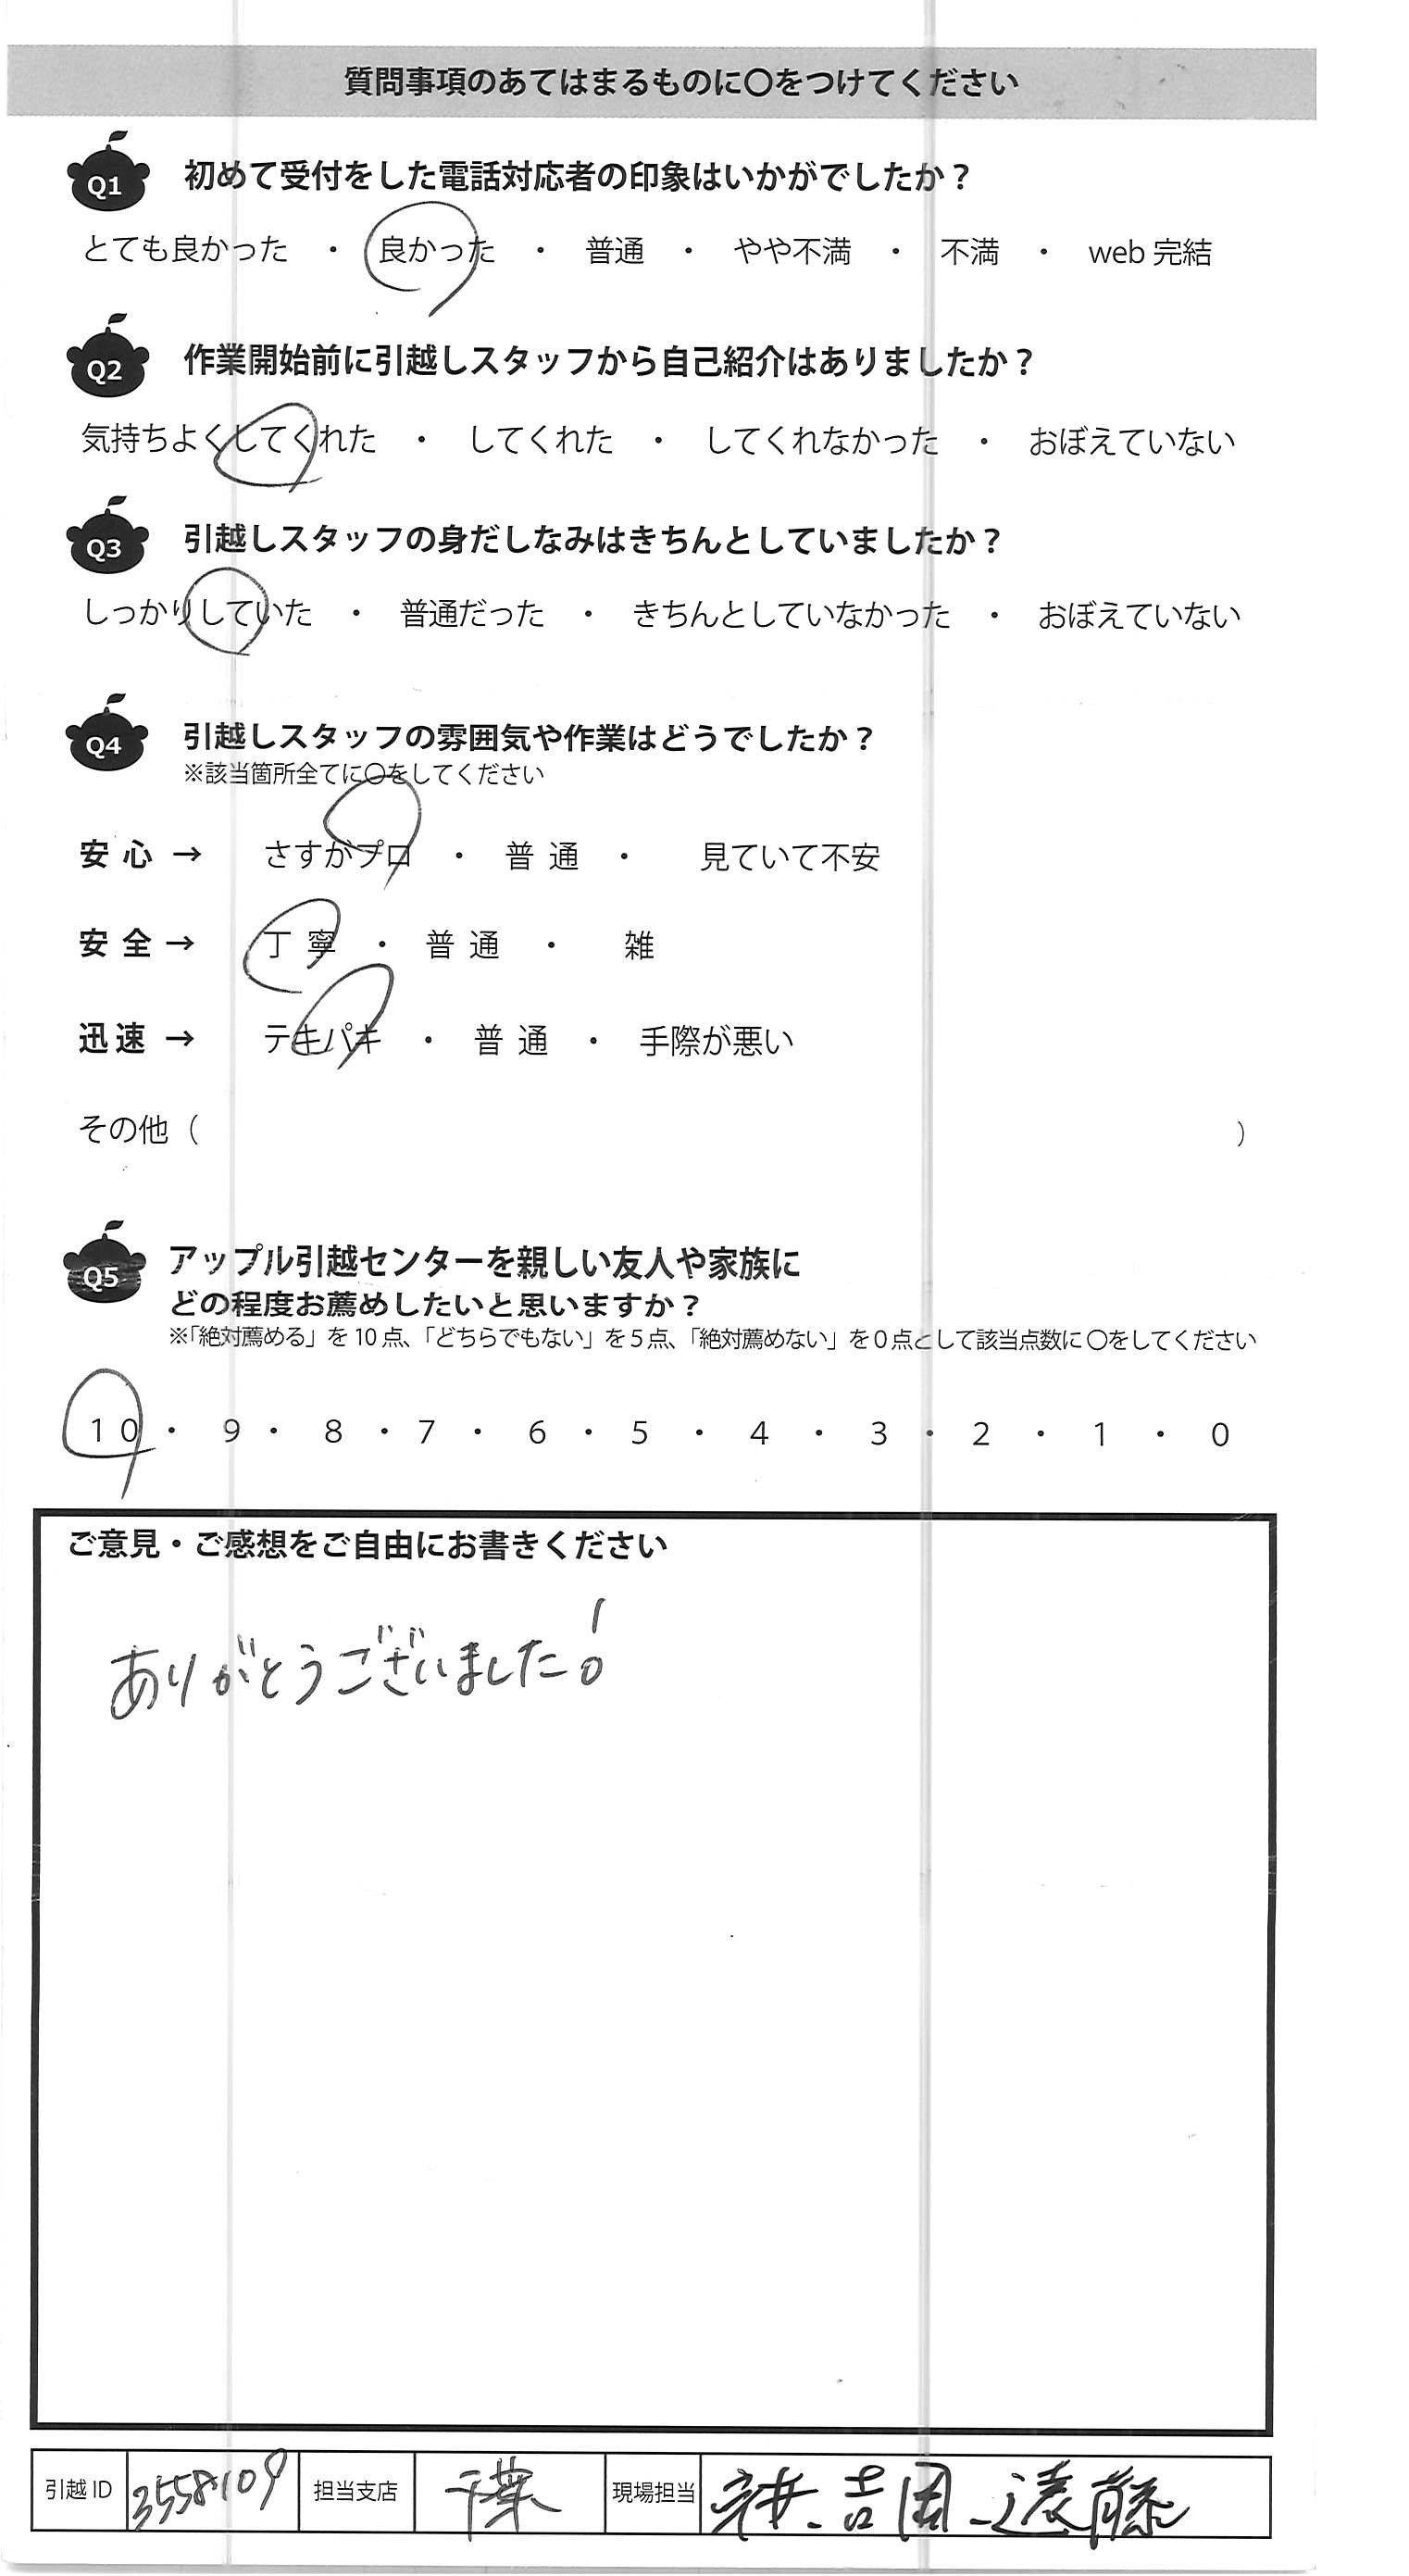 質問事項のあてはまるものに〇をつけてください
Q1 初めて受付をした電話対応者の印象はいかがでしたか？
とても良かった ・ 良かった ・ 普通 ・ やや不満 ・ 不満 ・ web 完結
Q2 作業開始前に引越しスタッフから自己紹介はありましたか？
気持ちよくしてくれた ・ してくれた ・ してくれなかった ・ おぼえていない
Q3 引越しスタッフの身だしなみはきちんとしていましたか？
しっかりしていた ・ 普通だった ・ きちんとしていなかった ・ おぼえていない
Q4 引越しスタッフの雰囲気や作業はどうでしたか？
※該当箇所全てに〇をしてください
安心 → さすがプロ ・ 普通 ・ 見ていて不安
安全 → 丁寧 ・ 普通 ・ 雑
迅速 → テキパキ ・ 普通 ・ 手際が悪い
その他（ ）
Q5 アップル引越センターを親しい友人や家族に
どの程度お薦めしたいと思いますか？
※「絶対薦める」を 10 点、「どちらでもない」を 5 点、「絶対薦めない」を 0 点として該当点数に〇をしてください
10 ・ 9 ・ 8 ・ 7 ・ 6 ・ 5 ・ 4 ・ 3 ・ 2 ・ 1 ・ 0
ご意見・ご感想をご自由にお書きください
ありがとうございました！
引越 ID 3558109 担当支店 千葉 現場担当 吉岡 遠藤